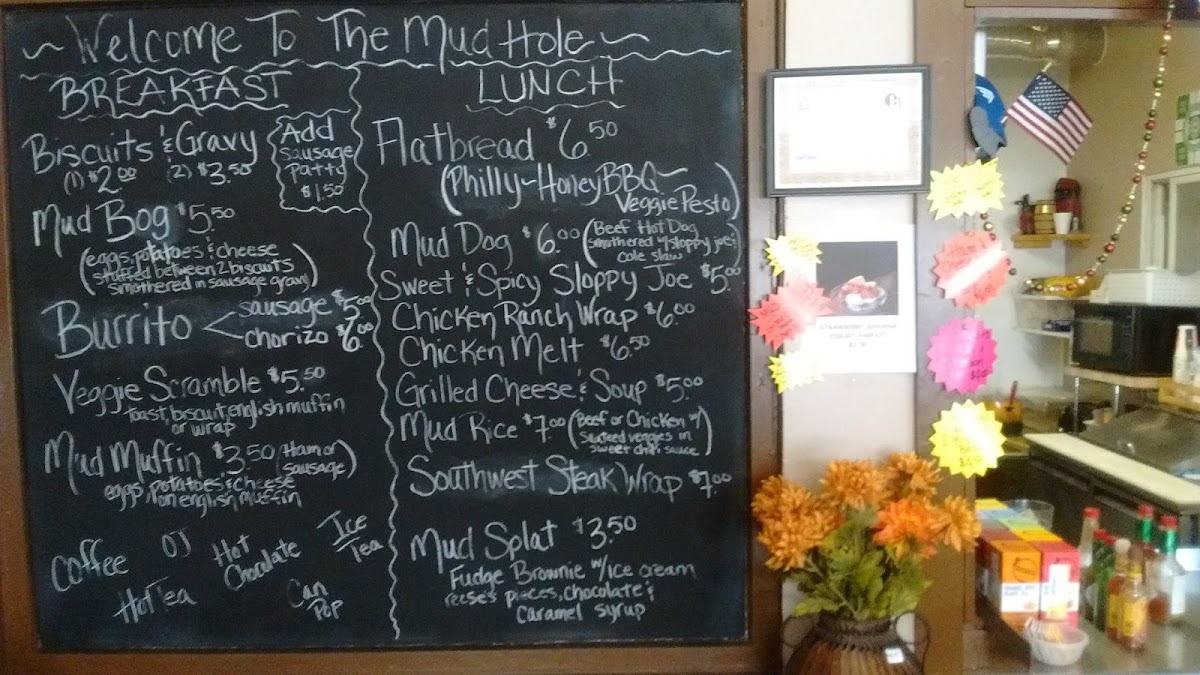 ~ Welcome To The Mud Hole ~
BREAKFAST
Biscuits & Gravy
(1) $2.00 (2) $3.50
Add
sausage
patty
$1.50
Mud Bog $5.50
(eggs, potatoes & cheese
stuffed between 2 biscuits
smothered in sausage gravy)
Burrito < sausage $5.00
chorizo $6.00
Veggie Scramble $5.50
toast, biscuit, english muffin
or wrap
Mud Muffin $3.50 (Ham or
sausage)
eggs, potatoes & cheese
on english muffin
Coffee
OJ
Hot
Chocolate
Ice
Tea
Hot Tea
Can
Pop
LUNCH
Flatbread $6.50
(Philly ~ Honey BBQ ~
Veggie Pesto)
Mud Dog $6.00 (Beef Hot Dog
smothered w/ sloppy joe &
cole slaw)
Sweet & Spicy Sloppy Joe $5.00
Chicken Ranch Wrap $6.00
Chicken Melt $6.50
Grilled Cheese & Soup $5.00
Mud Rice $7.00 (Beef or Chicken w/
Sauteed veggies in
sweet chili sauce)
Southwest Steak Wrap $7.00
Mud Splat $3.50
Fudge Brownie w/ ice cream
reese's pieces, chocolate &
caramel syrup